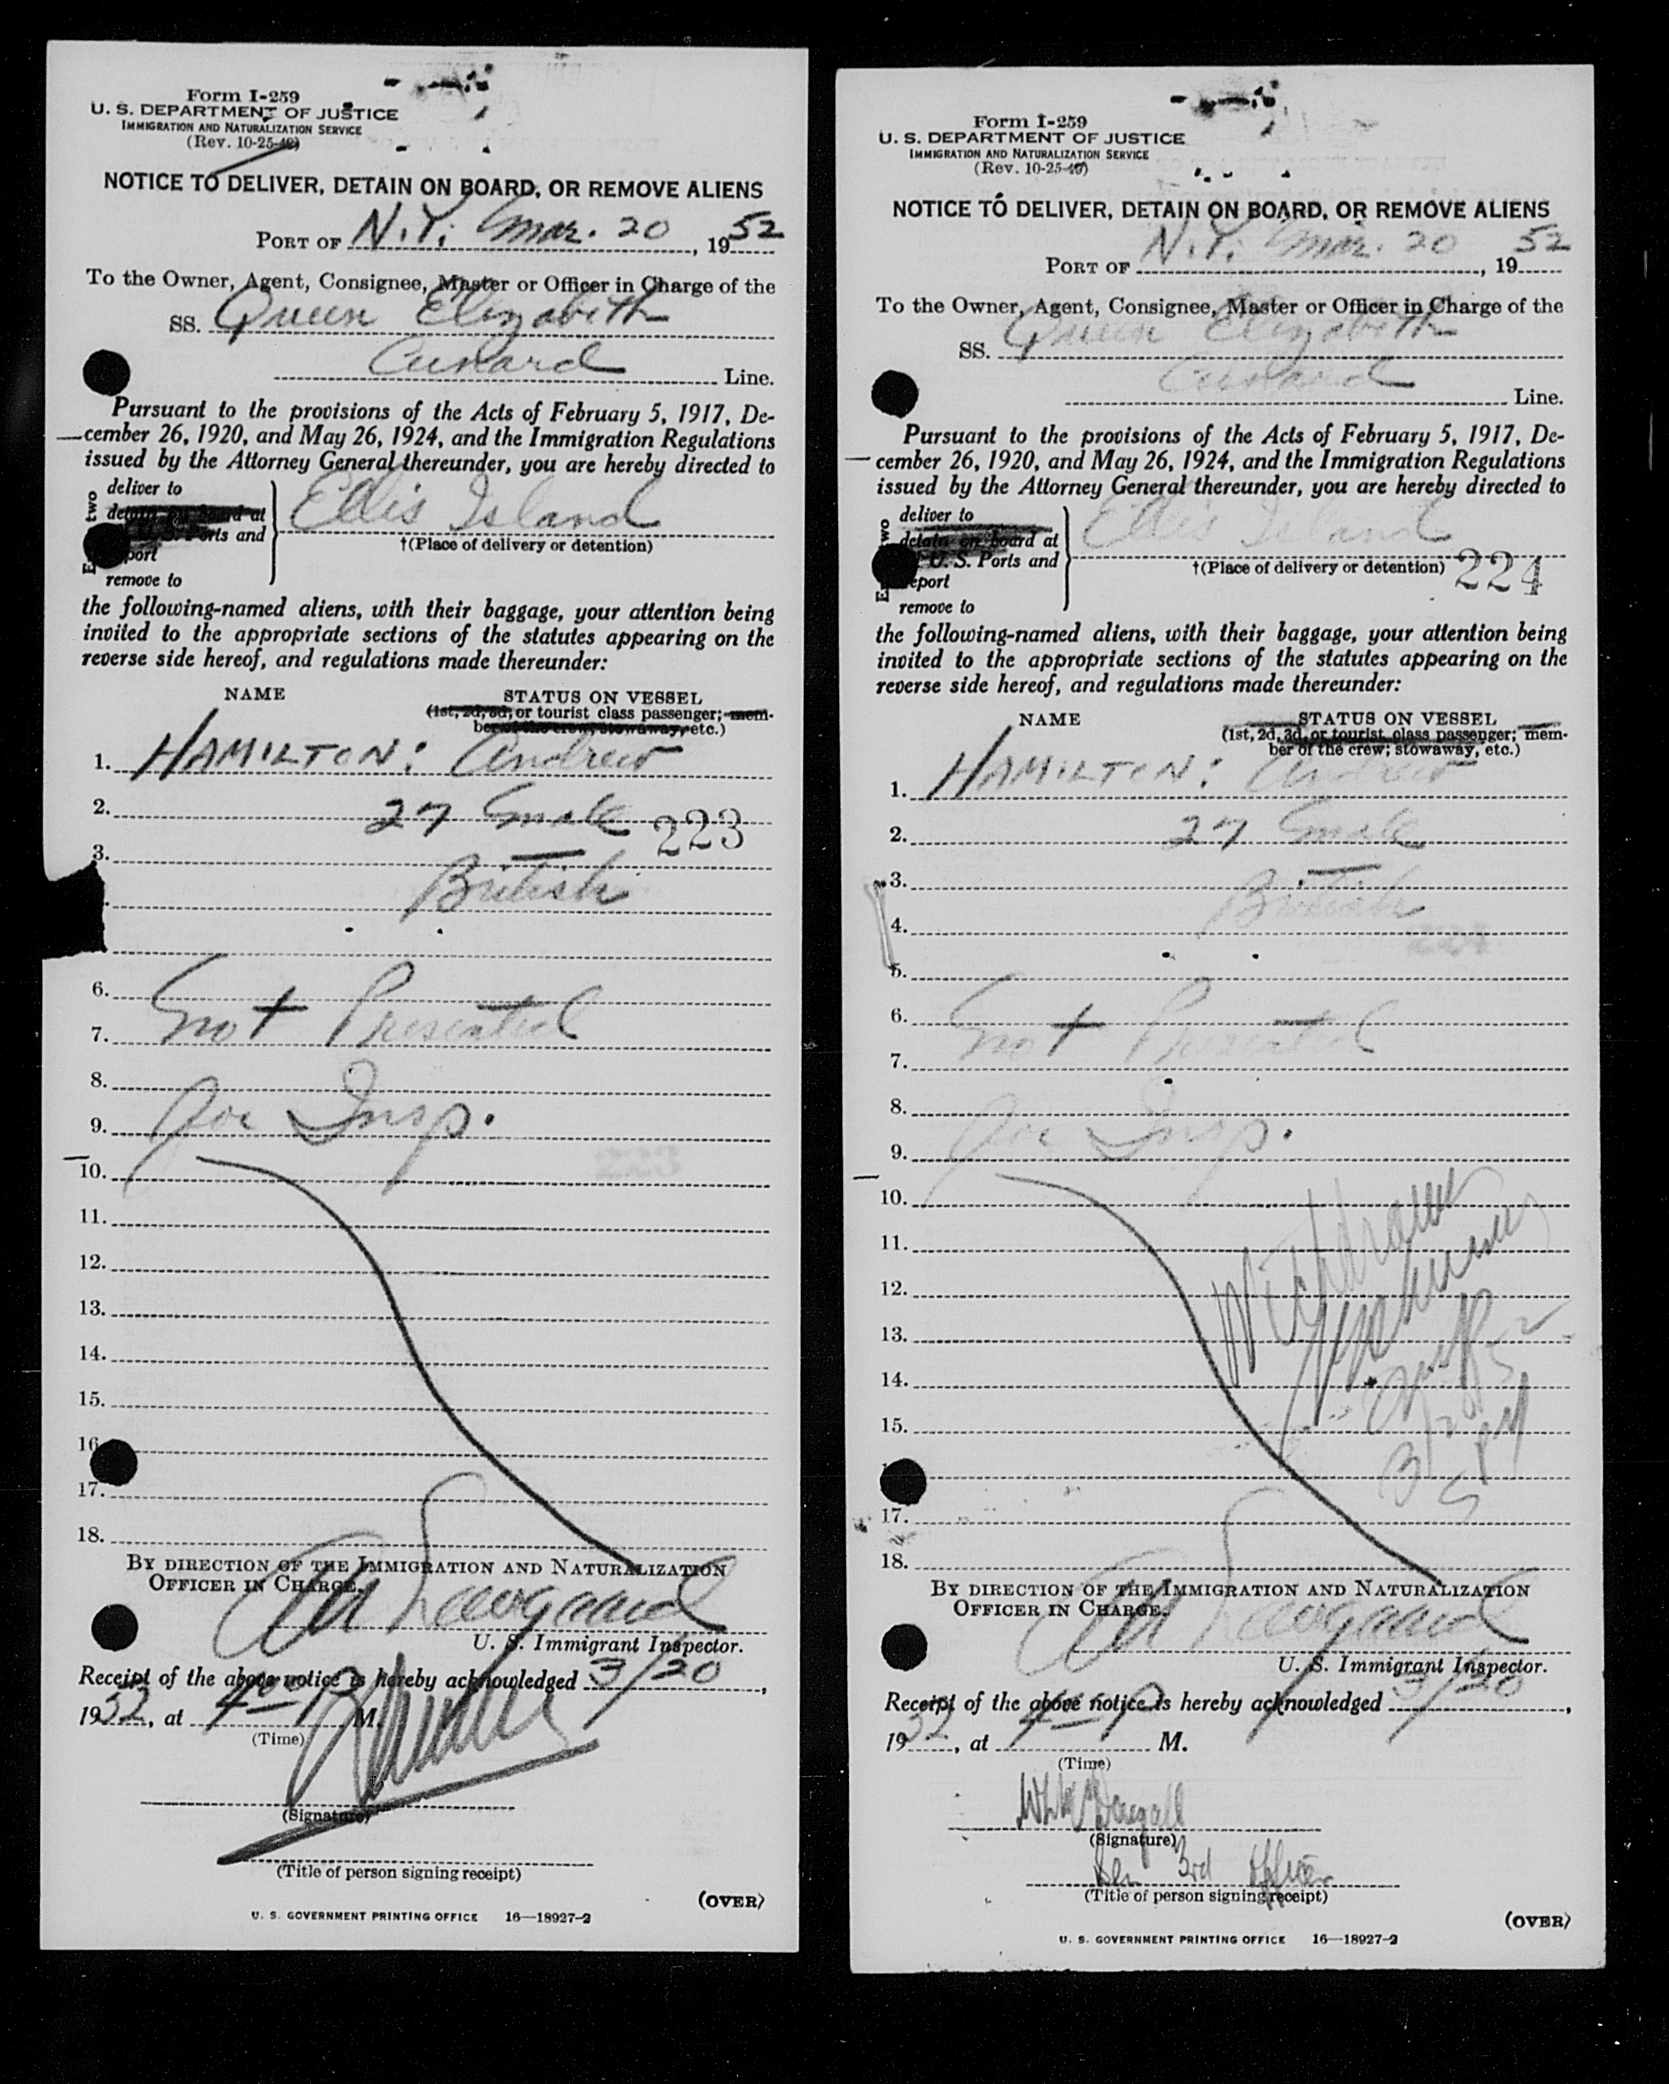 Form I-259
U. S. DEPARTMENT OF JUSTICE
IMMIGRATION AND NATURALIZATION SERVICE
(Rev. 10-25-49)
NOTICE TO DELIVER, DETAIN ON BOARD, OR REMOVE ALIENS
PORT OF N.Y. Mar. 20, 1952
To the Owner, Agent, Consignee, Master or Officer in Charge of the
SS. Queen Elizabeth
Cunard Line.
Pursuant to the provisions of the Acts of February 5, 1917, De-
cember 26, 1920, and May 26, 1924, and the Immigration Regulations
issued by the Attorney General thereunder, you are hereby directed to
deliver to
detain on board at
Ports and
port
remove to
two
Ellis Island
†(Place of delivery or detention)
the following-named aliens, with their baggage, your attention being
invited to the appropriate sections of the statutes appearing on the
reverse side hereof, and regulations made thereunder:
NAME STATUS ON VESSEL
(1st, 2d, 3d, or tourist class passenger; mem-
ber of the crew, stowaway, etc.)
1. HAMILTON: Andrew
2. 27 Male 223
3.
British
6.
Not Presented
7.
8.
9. for Insp.
10.
11.
12.
13.
14.
15.
16
17.
18.
BY DIRECTION OF THE IMMIGRATION AND NATURALIZATION
OFFICER IN CHARGE.
U. S. Immigrant Inspector.
Receipt of the above notice is hereby acknowledged 3/20,
1952, at 4 — P M.
(Time)
(Signature)
(Title of person signing receipt)
(OVER)
U. S. GOVERNMENT PRINTING OFFICE 16—18927-2
Form I-259
U. S. DEPARTMENT OF JUSTICE
IMMIGRATION AND NATURALIZATION SERVICE
(Rev. 10-25-49)
NOTICE TO DELIVER, DETAIN ON BOARD, OR REMOVE ALIENS
PORT OF N.Y. Mar. 20, 1952
To the Owner, Agent, Consignee, Master or Officer in Charge of the
SS. Queen Elizabeth
Cunard Line.
Pursuant to the provisions of the Acts of February 5, 1917, De-
cember 26, 1920, and May 26, 1924, and the Immigration Regulations
issued by the Attorney General thereunder, you are hereby directed to
deliver to
detain on board at
U. S. Ports and
eport
remove to
wo
Ellis Island
†(Place of delivery or detention) 224
the following-named aliens, with their baggage, your attention being
invited to the appropriate sections of the statutes appearing on the
reverse side hereof, and regulations made thereunder:
NAME STATUS ON VESSEL
(1st, 2d, 3d, or tourist class passenger; mem-
ber of the crew; stowaway, etc.)
1. HAMILTON: Andrew
2. 27 Male
3.
British
4.
5.
6.
Not Presented
7.
8.
for Insp.
9.
10.
11.
Withdrawn
12.
13.
14.
15.
3/20/52
5 PM
17.
18.
BY DIRECTION OF THE IMMIGRATION AND NATURALIZATION
OFFICER IN CHARGE.
U. S. Immigrant Inspector.
Receipt of the above notice is hereby acknowledged 3/20,
1952, at 4 — P M.
(Time)
(Signature)
3rd Officer
(Title of person signing receipt)
(OVER)
U. S. GOVERNMENT PRINTING OFFICE 16—18927-2